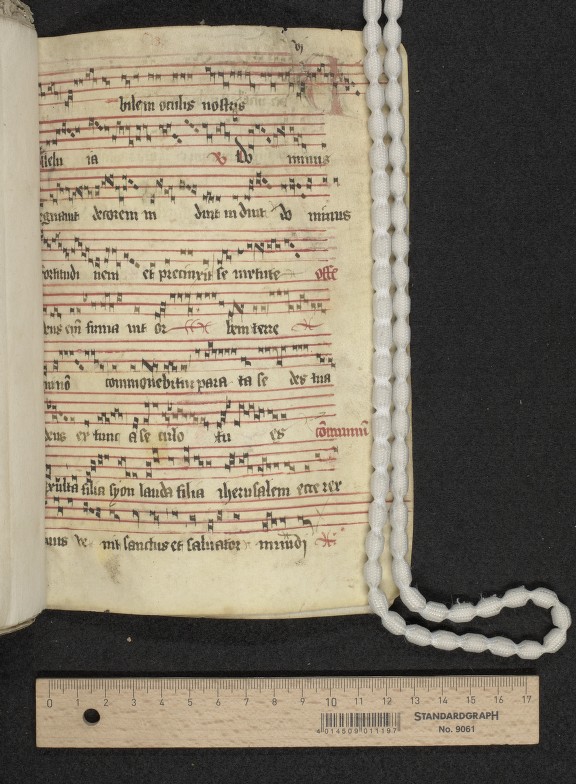 vj
bilem oculis nostris
ia Do minus
decorem in duit induit do minus
ortitudi nem et precinxit se uirtute offe
eus firma uit or bem terre
commouebitur para ta se des tua
deus ex tunc a se culo tu es
xulta filia syon lauda filia iherusalem ecce rex
uus ve nit sanctus et saluator mundi
0 1 2 3 4 5 6 7 8 9 10 11 12 13 14 15 16 17
4 014509 011197
STANDARDGRAPH
No. 9061